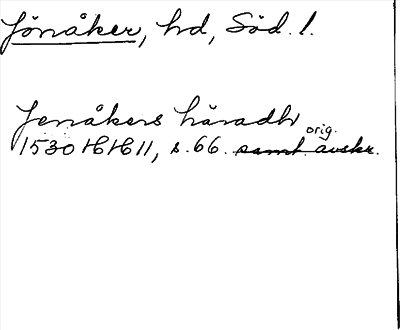 Jönåker, hd, Söd. l.
Jenåkers häradh
orig.
1530 HH 11, s. 66. samt avskr.